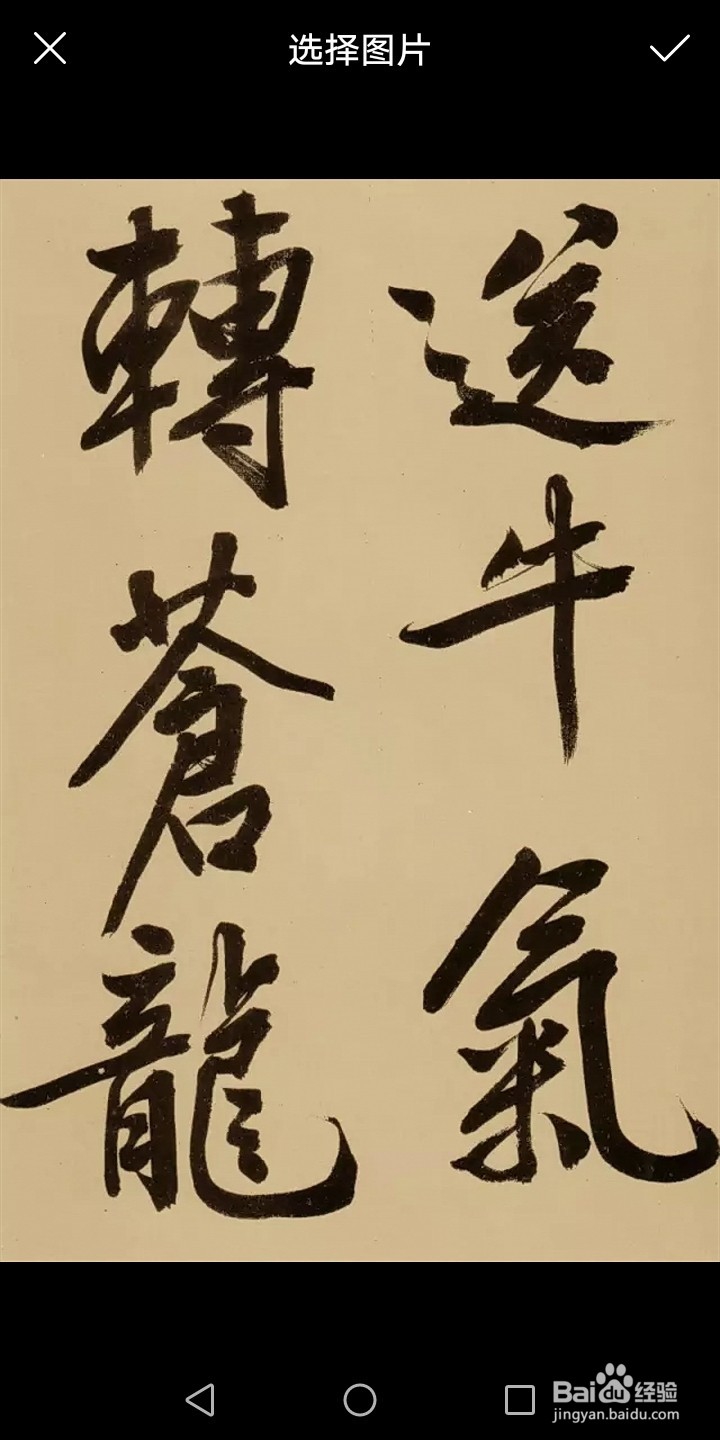 选择图片
送牛氣
轉蒼龍
Baidu经验
jingyan.baidu.com